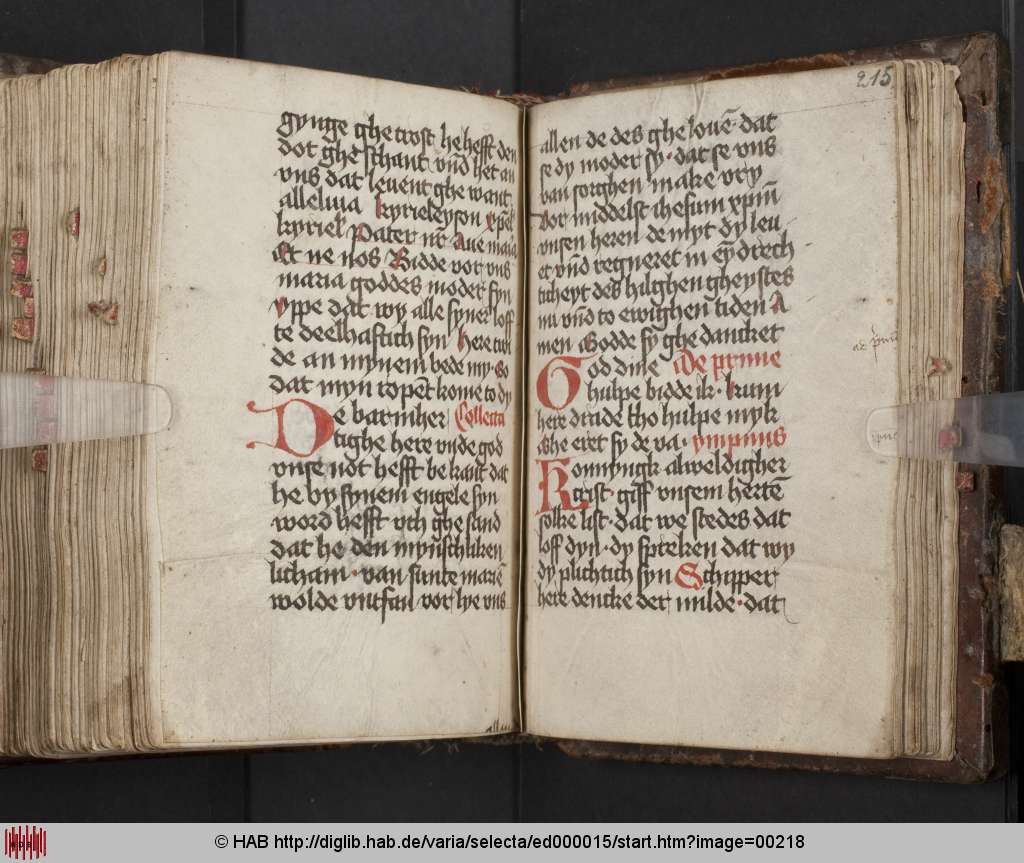 gynge ghe trost he hefft den
dot ghe schant vnd het an
vns dat levent ghe want
alleluia kyrieleyson xp̄el
kyriel Pater nr̄ Aue maria
Et ne nos Bidde vor vns
maria goddes moder syn
dat wy alle syner loff
te deelhaftich syn here
de an mynem bede my So
dat myn ropēt kome to dy
De barmher Collecta
tighe here vnde god
vnse nōt hefft be kant dat
he by synem engele syn
word hefft vth ghe sand
dat he den mynschliken
licham van sunte mariē
wolde vntfan vor lye vns
allen
215
allen de des ghe louē dat
se dy moder sy dat se vns
van sorghen make vry
vor middelst ihesum xpm̄
vnsen heren de myt dy leu
et vnd regneret in
ticheyt des hilghen gheystes
nu vnd to ewighen tiden A
men Godde sy ghe dancket
God dn̄e Ade prime
hulpe bidde ik kum
here drade tho hulpe myk
ghe eret sy de va ympnus
Konnyngk alweldigher
krist giff vnsem hertē
solke list dat we stedes dat
loff dyn dy spreken dat wy
dy plichtich syn Schipper
here dencke der milde dat
© HAB http://diglib.hab.de/varia/selecta/ed000015/start.htm?image=00218